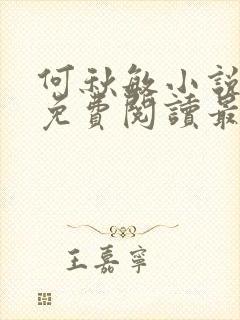 何秋敏小說
免費閱讀最
王嘉寧